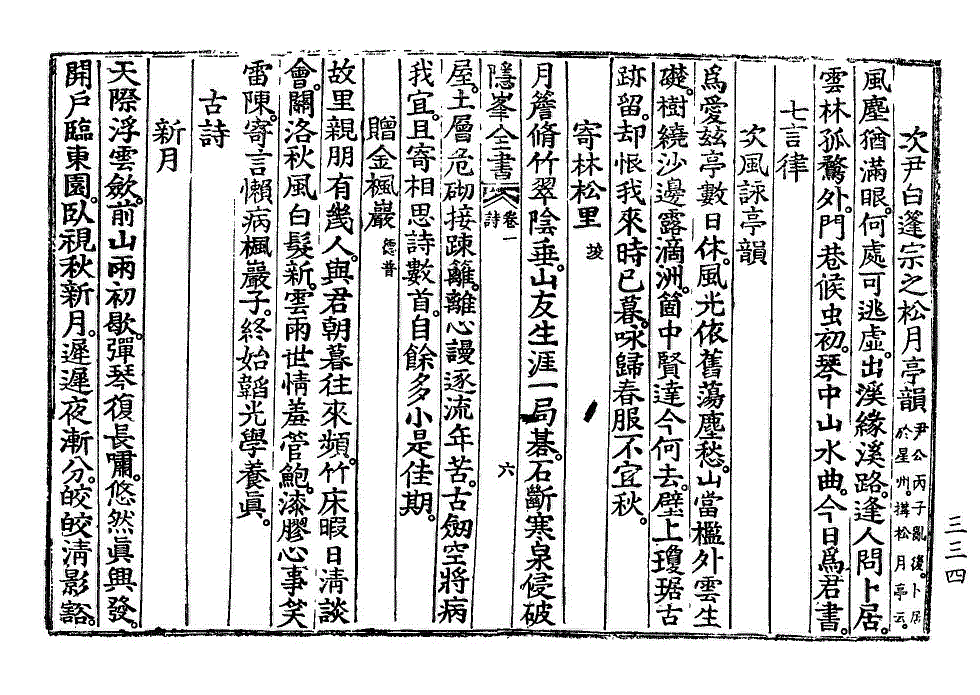 次尹白蓬宗之松月亭韻 尹公丙子亂後。卜居
於星州。搆松月亭云。
風塵猶滿眼。何處可逃虛。出溪緣溪路。逢人問卜居。
雲林孤鶩外。門巷候虫初。琴中山水曲。今日爲君書。
七言律
次風詠亭韻
爲愛玆亭數日休。風光依舊蕩塵愁。山當檻外雲生
礎。樹繞沙邊露滴洲。箇中賢達今何去。壁上瓊琚古
跡留。却恨我來時已暮。咏歸春服不宜秋。
寄林松里 㻐
月簷脩竹翠陰垂。山友生涯一局棊。石斷寒泉侵破
隱峯全書 卷一
詩 六
屋。土層危砌接踈籬。離心謾逐流年苦。古劒空將病
我宜。且寄相思詩數首。自餘多少是佳期。
贈金楓巖 德普
故里親朋有幾人。與君朝暮往來頻。竹床暇日淸談
會。關洛秋風白髮新。雲雨世情羞管鮑。漆膠心事笑
雷陳。寄言懶病楓巖子。終始韜光學養眞。
古詩
新月
天際浮雲斂。前山雨初歇。彈琴復長嘯。悠然眞興發。
開戶臨東園。臥視秋新月。遲遲夜漸分。皎皎淸影豁。
三三四